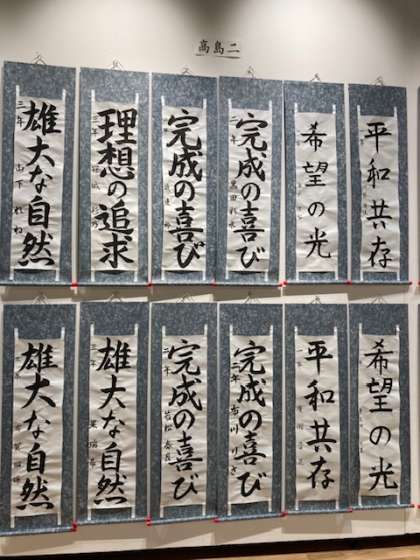 高島二
平和共存
希望の光
完成の喜び
二年
黒田
完成の喜び
理想の追求
三年
雄大な自然
三年
山下
希望の光
平和共存
完成の喜び
二年
市川りさ
完成の喜び
二年
若松
雄大な自然
三年
雄大な自然
三年